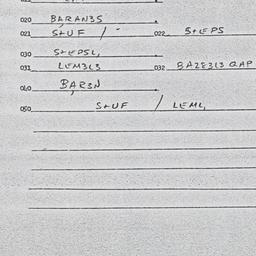 020 BARAN35
021 S+UF / 022 S+EPS
030 S+EPSL,
031 LEM3L3 032 BAZE3L3 QAP
040 BAR3N
050 S+UF / LEML,